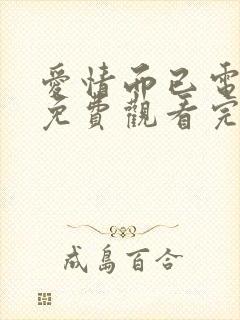 愛情而已電
免費觀看完
成島百合